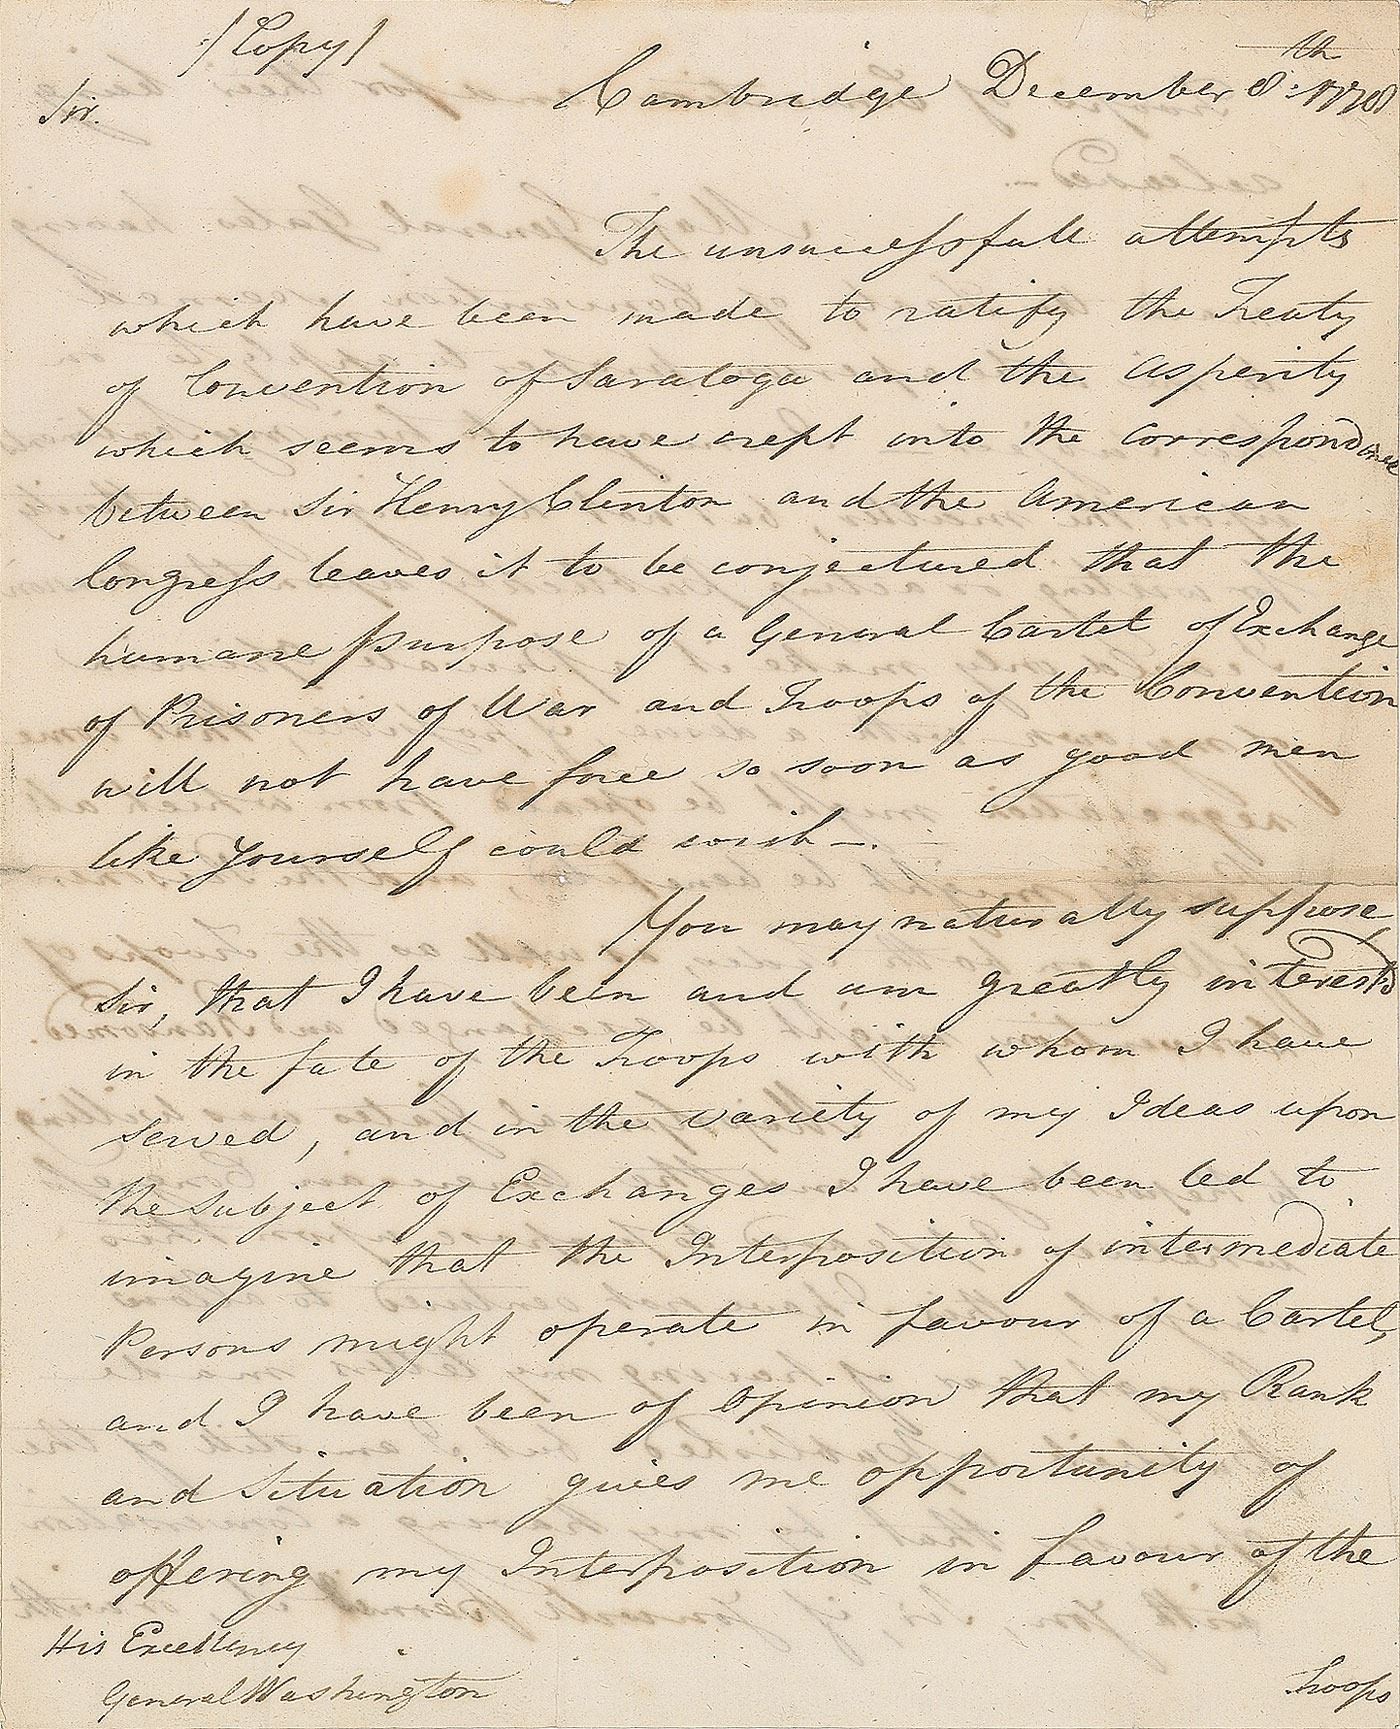 /Copy/
Cambridge December 8th: 1778
Sir.
The unsuccessfull attempts
which have been made to ratify the Treaty
of Convention of Saratoga and the asperity
which seems to have crept into the correspondance
between Sir Henry Clinton and the American
Congress leaves it to be conjectured that the
humane purpose of a General Cartel of Exchange
of Prisoners of War and Troops of the Convention
will not have force so soon as good men
like yourself could wish —.
You may naturally suppose,
Sir, that I have been and am greatly interested
in the fate of the Troops with whom I have
served, and in the variety of my Ideas upon
the Subject of Exchanges I have been led to
imagine that the Interposition of intermediate
Persons might operate in favour of a Cartel,
and I have been of Opinion that my Rank
and Situation gives me opportunity of
offering my Interposition in favour of the
His Excellency
General Washington
Troops